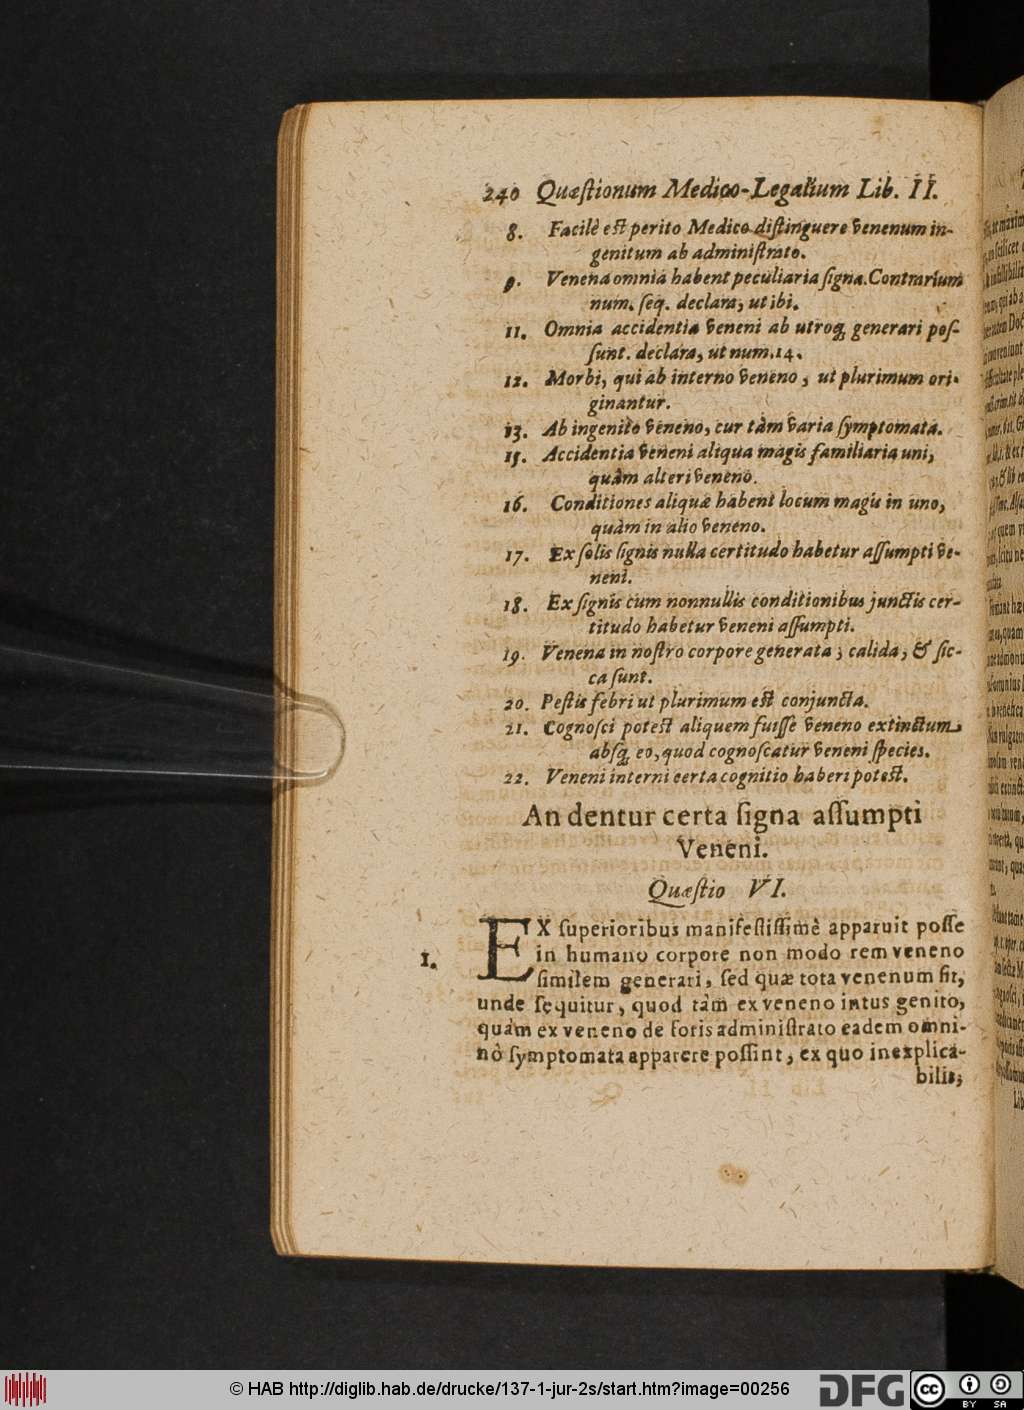 240 Quæſtionum Medico-Legalium Lib. II.
8. Facilè est perito Medico diſtinguere venenum in-
genitum ab adminiſtrato.
9. Venena omnia habent peculiaria ſigna. Contrarium
num. ſeq. declara, ut ibi.
11. Omnia accidentia veneni ab utroq; generari poſ-
ſunt. declara, ut num. 14.
12. Morbi, qui ab interno veneno, ut plurimum ori-
ginantur.
13. Ab ingenito veneno, cur tàm varia ſymptomata.
15. Accidentia veneni aliqua magis familiaria uni,
quàm alteri veneno.
16. Conditiones aliquæ habent locum magis in uno,
quàm in alio veneno.
17. Ex ſolis ſignis nulla certitudo habetur aſſumpti ve-
neni.
18. Ex ſignis cum nonnullis conditionibus junctis cer-
titudo habetur veneni aſſumpti.
19. Venena in noſtro corpore generata, calida, & ſic-
ca ſunt.
20. Peſtis febri ut plurimum est conjuncta.
21. Cognoſci potest aliquem fuiſſe veneno extinctum
abſq; eo, quod cognoſcatur veneni ſpecies.
22. Veneni interni certa cognitio haberi potest.
An dentur certa ſigna aſſumpti
Veneni.
Quæſtio VI.
1. EX ſuperioribus manifeſtiſſimè apparuit poſſe
in humano corpore non modo rem veneno
ſimilem generari, ſed quæ tota venenum ſit,
unde ſequitur, quod tàm ex veneno intus genito,
quàm ex veneno de foris adminiſtrato eadem omni-
nò ſymptomata apparere poſſint, ex quo inexplica-
bilis;
© HAB http://diglib.hab.de/drucke/137-1-jur-2s/start.htm?image=00256
DFG
cc BY SA